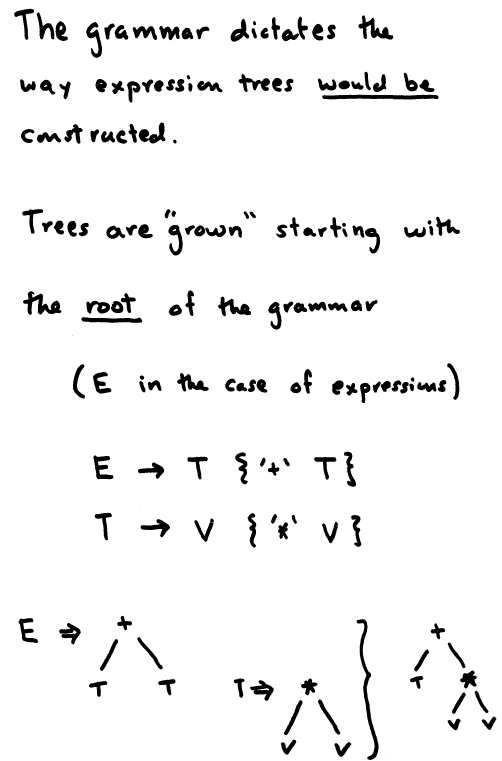 The grammar dictates the
way expression trees would be
constructed.
Trees are "grown" starting with
the root of the grammar
(E in the case of expressions)
E → T {'+' T}
T → V {'*' V}
E ⇒ +
T T
T ⇒ *
V V
}
+
T *
V V